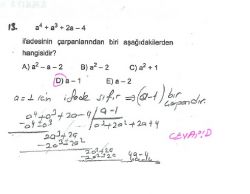 13. a⁴ + a³ + 2a - 4
ifadesinin çarpanlarından biri aşağıdakilerden
hangisidir?
A) a² - a - 2 B) a² - 2 C) a² + 1
D) a - 1 E) a - 2
a = 1 için ifade sıfır ⇒ (a-1) bir
çarpandır.
a⁴ + a³ + 2a - 4 | a - 1
a³ + 2a² + 2a + 4
2a³ + 2a
2a² + 2a
4a - 4
CEVAP D